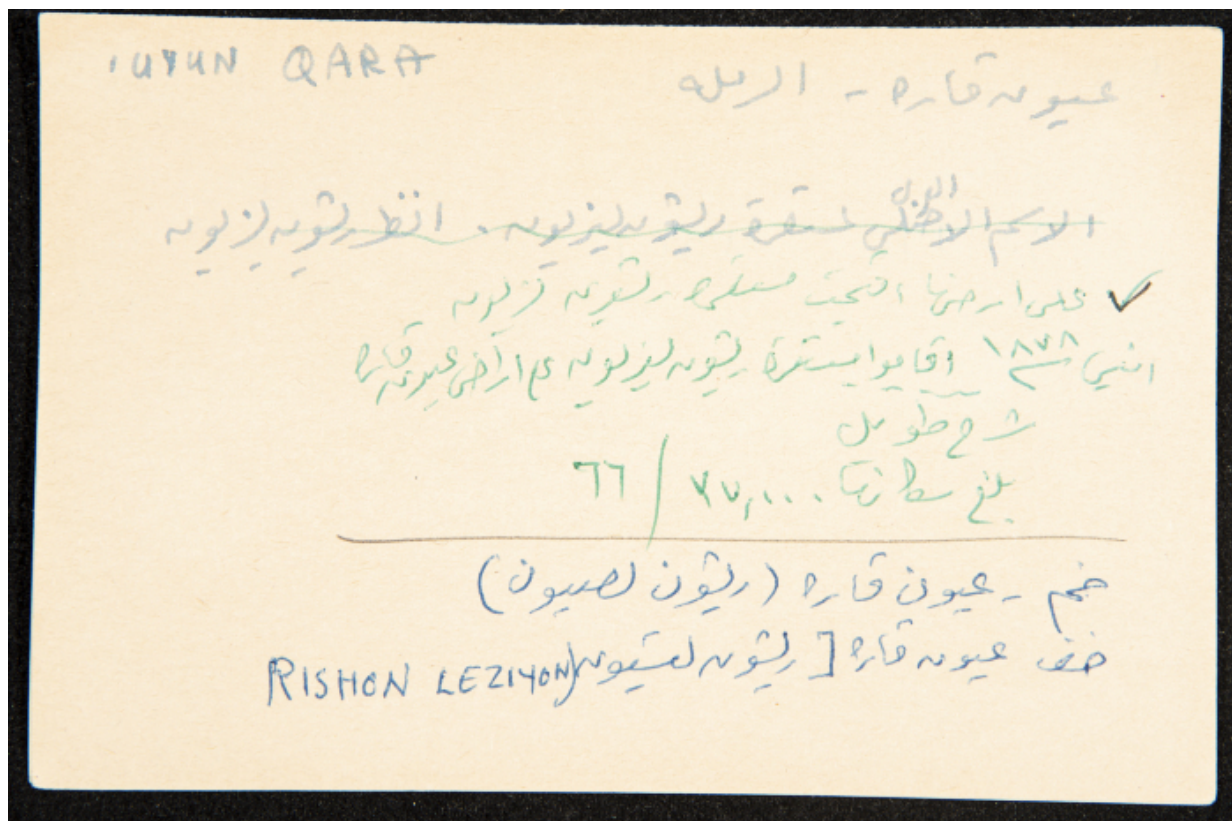 'UYUN QARA
عيون قاره - الرمله
العربي
الاسم الاصلي لمستعمرة ريشون ليزيون. انظر ريشون ليزيون
✓ على ارضها اقيمت مستعمرة ريشون ليزيون
١٨٧٨ اقاموا مستعمرة ريشون ليزيون ع اراضي عيون قاره
شرح طويل
بلغ سكانها ٧٧,٠٠٠ / ٦٦
خم - عيون قاره (ريشون لصيون)
خف عيون قاره [ريشون لتسيون RISHON LEZIYON)